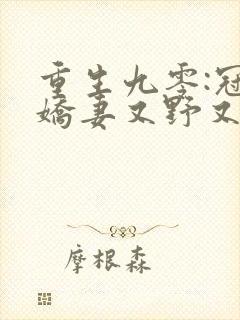 重生九零:冠
嬌妻又野又
摩根森